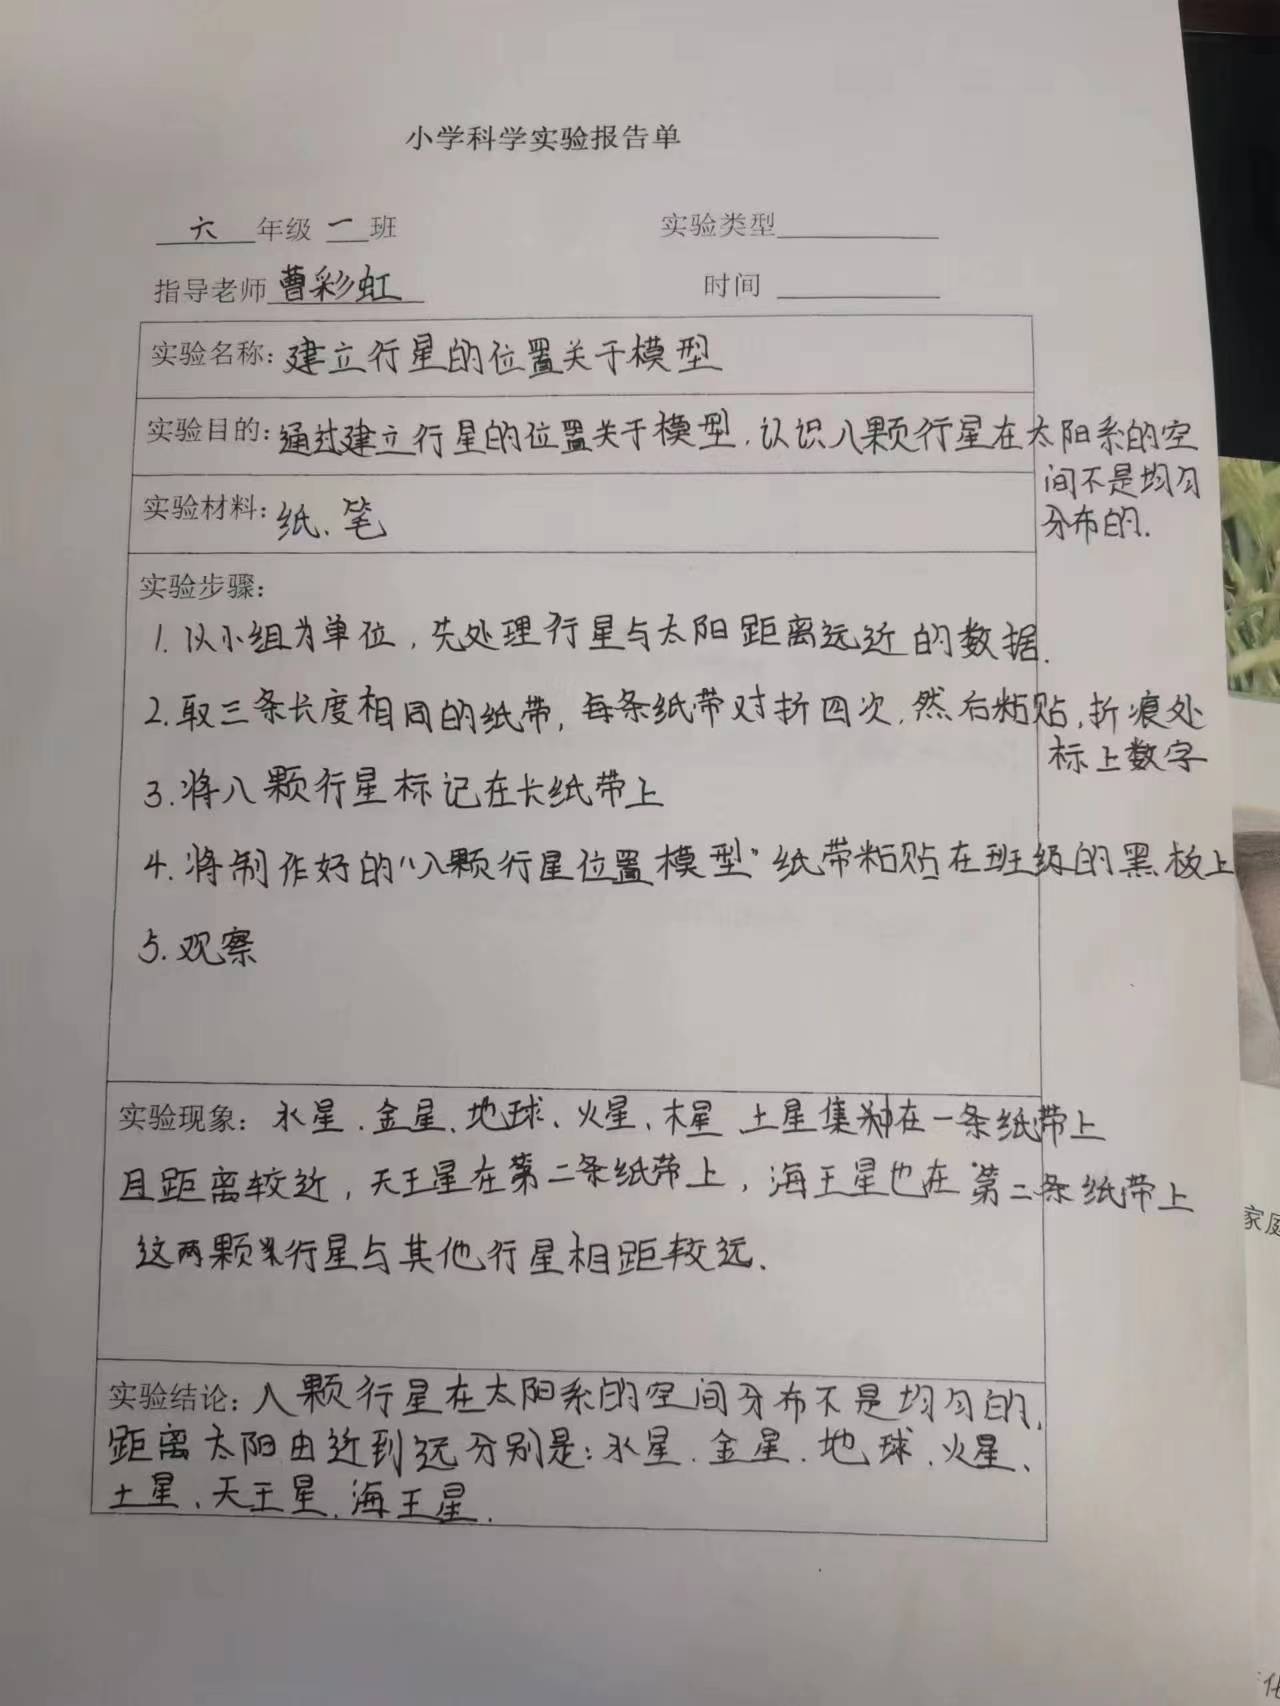 小学科学实验报告单
六年级一班 实验类型
指导老师曹彩虹 时间
实验名称：建立行星的位置关于模型
实验目的：通过建立行星的位置关于模型，认识八颗行星在太阳系的空
间不是均匀
分布的.
实验材料：纸、笔
实验步骤：
1. 以小组为单位，先处理行星与太阳距离远近的数据.
2. 取三条长度相同的纸带，每条纸带对折四次，然后粘贴，折痕处
标上数字
3. 将八颗行星标记在长纸带上
4. 将制作好的“八颗行星位置模型”纸带粘贴在班级的黑板上
5. 观察
实验现象：水星、金星、地球、火星、木星 土星集中在一条纸带上
且距离较近，天王星在第二条纸带上，海王星也在第二条纸带上
这两颗行星与其他行星相距较远.
实验结论：八颗行星在太阳系的空间分布不是均匀的，
距离太阳由近到远分别是：水星、金星、地球、火星、
土星、天王星、海王星.
家庭